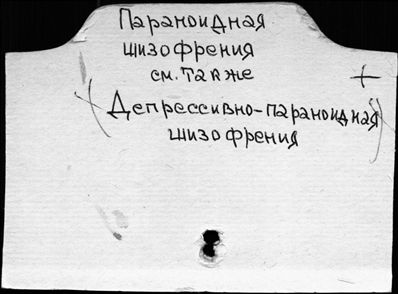 Параноидная
шизофрения
см. также
+
(Депрессивно-параноидная)
шизофрения